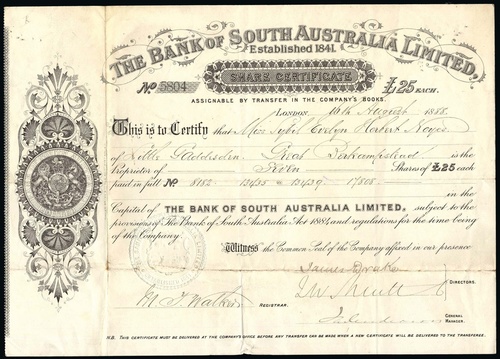 THE BANK OF SOUTH AUSTRALIA LIMITED.
Established 1841.
No 5804 SHARE CERTIFICATE £25 EACH.
ASSIGNABLE BY TRANSFER IN THE COMPANY'S BOOKS.
LONDON, 16th August 1888.
This is to Certify that Miss Sybil Evelyn Herbert Noyes
of Little Gaddesden Great Berkhampstead is the
Proprietor of Seven Shares of £25 each
paid in full No 8182 13435 13439 17808 in the
Capital of THE BANK OF SOUTH AUSTRALIA LIMITED, subject to the
provisions of The Bank of South Australia Act 1884, and regulations for the time being
of the Company.
Witness the Common Seal of the Company affixed in our presence
James Drake
DIRECTORS.
REGISTRAR.
GENERAL MANAGER.
N.B. THIS CERTIFICATE MUST BE DELIVERED AT THE COMPANY'S OFFICE BEFORE ANY TRANSFER CAN BE MADE WHEN A NEW CERTIFICATE WILL BE DELIVERED TO THE TRANSFEREE.